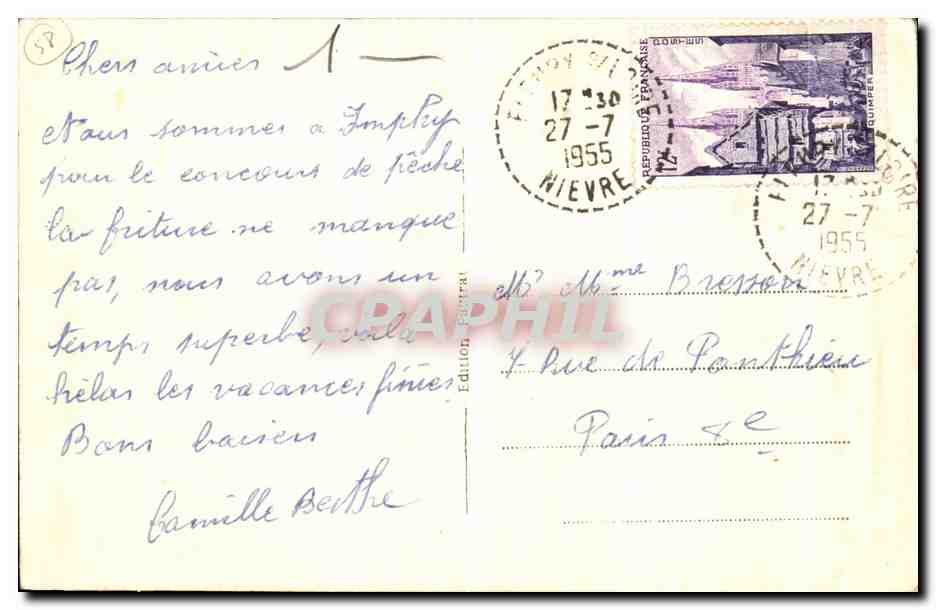 58
Chers amies 1 —
Nous sommes a Imphy
pour le concours de pêche
la friture ne manque
pas, nous avons un
temps superbe, voila
hélas les vacances finies
Bons baisers
Camille Berthe
Edition
17 30
27 -7
1955
NIEVRE
REPUBLIQUE FRANÇAISE
POSTES
QUIMPER
LOIRE
27 -7
1955
NIEVRE
Mr Mme Bresson
7 Rue de Ponthieu
Paris 8e
CPAPHIL